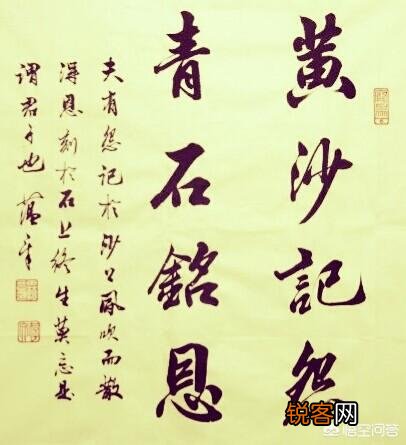 黄沙記怨
青石銘恩
夫有怨記於沙上風吹而散
得恩刻於石上終生莫忘是
謂君子也
锐客网
悟空问答